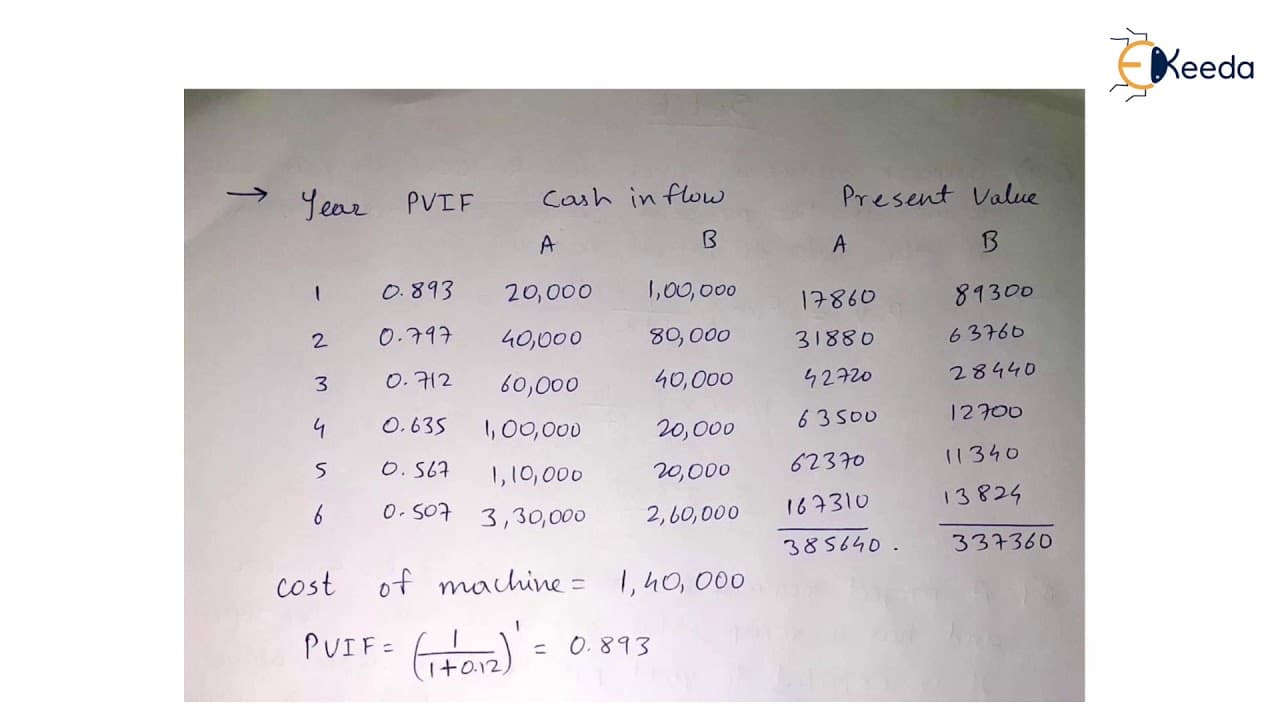 EKeeda
→ Year PVIF Cash inflow Present Value
A B A B
1 0.893 20,000 1,00,000 17860 89300
2 0.797 40,000 80,000 31880 63760
3 0.712 60,000 40,000 42720 28440
4 0.635 1,00,000 20,000 63500 12700
5 0.567 1,10,000 20,000 62370 11340
6 0.507 3,30,000 2,60,000 167310 13824
385640. 337360
cost of machine = 1,40,000
PVIF = (1/1+0.12)¹ = 0.893